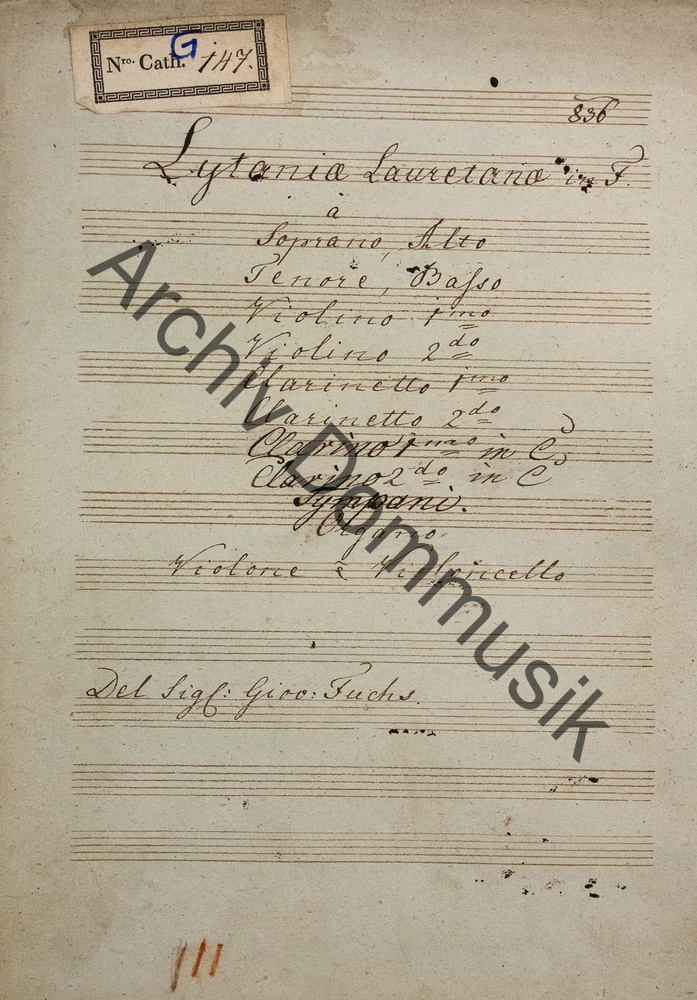 Nro. Cath. G 147.
836
Lytaniæ Lauretanæ in F.
a
Soprano, Alto
Tenore, Basso
Violino 1mo
Violino 2do
Clarinetto 1mo
Clarinetto 2do
Clarino 1mo in C
Clarino 2do in C
Tympani.
Organo
Violone e Violoncello
Del Sigl: Giov: Fuchs.
III
Archiv Dommusik